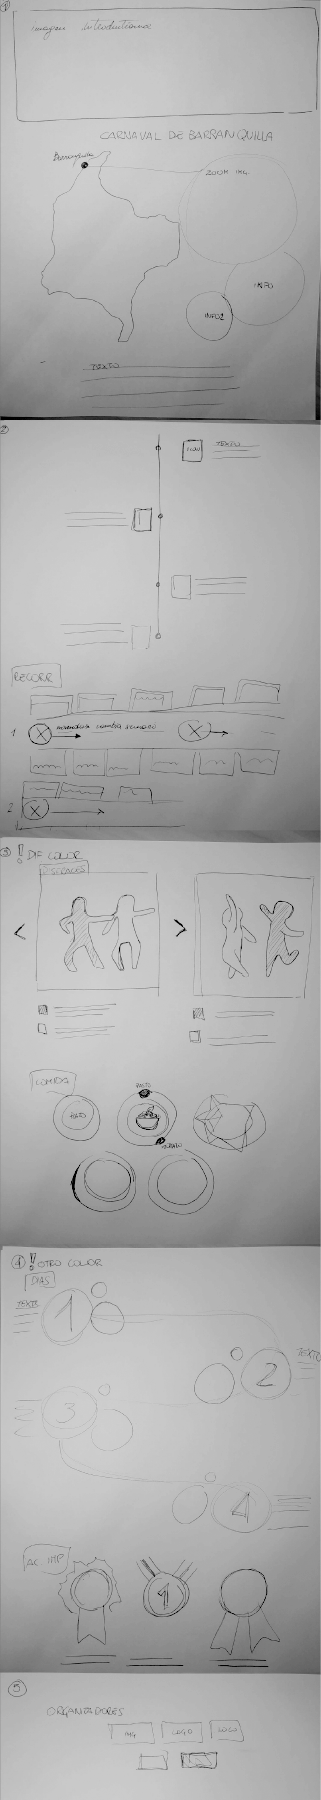 1
imagen introductoria
CARNAVAL DE BARRANQUILLA
Barranquilla
ZOOM IMG.
INFO
INFO2
TEXTO
2
TEXTO
RECORR
1
2
3 ! DIF COLOR
DISFRACES
< >
COMIDA
PLATO
4 ! OTRO COLOR
DIAS
TEXTO
1
TEXTO
2
3
4
AC IMP
1
5
ORGANIZADORES
IMG LOGO LOGO